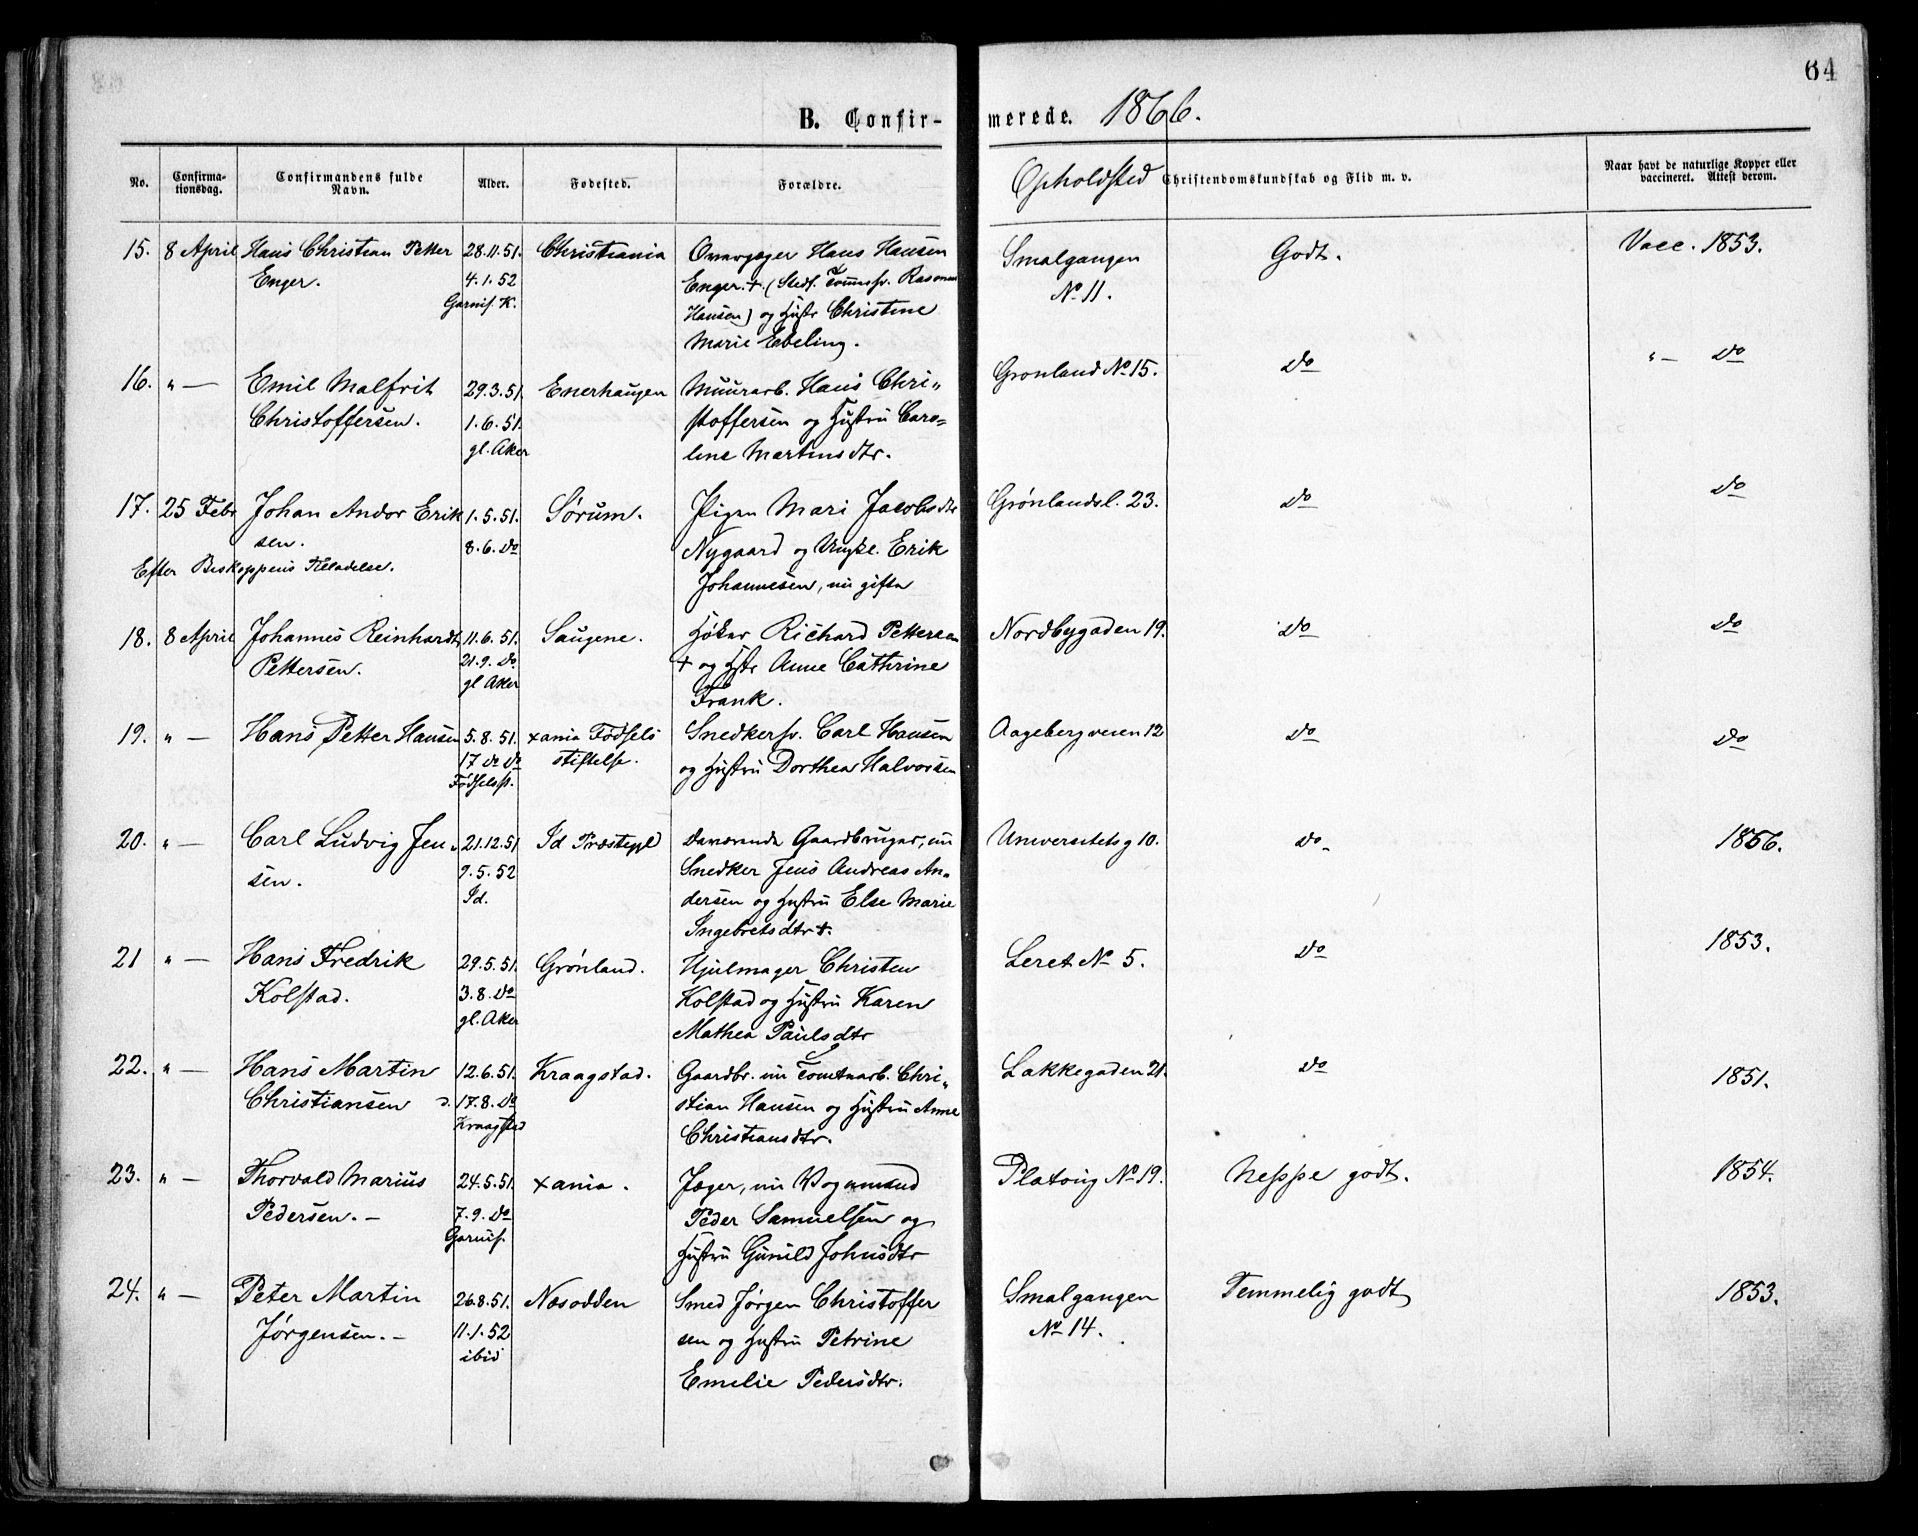 64
B. Confir-
merede. 1866.
No.
Confirma-
tionsdag.
Confirmandens fulde
Navn.
Alder.
Fødested.
Forældre.
Opholdsted
Christendomskundskab og Flid m. v.
Naar havt de naturlige Kopper eller
vaccineret. Attest derom.
15. 8 April Hans Christian Petter 28.11.51. Christiania Hans Hansen Smalgangen Godt. Vacc. 1853.
Enger. 4.1.52 Enger. +. (Stedf. Tømmsv. Hansen) og Hustr Christine No 11.
Garnis. K. Marie Ebeling.
16. " — Emil Malfrit 29.3.51. Enerhaugen Muurarb. Hans Chri„ Gronland No 15. do " — do
Christoffersen. 1.6.51. stoffersen og Hustru Caro=
gl. Aker line Martinsdtr.
17. 25 Febr Johan Andor Erik 1.5.51. Sørum. Pigen Mari Jacobsdtr Grønlandsl. 23. do do
sen. 8.6. do Nygaard og Ungke. Erik
Efter Biskoppens Tilladelse. Johannesen, nu gifta
18. 8 April Johannes Reinhardt 11.6.51. Saugene. Høker Richard Pettersen Nordbygaden 19. do do
Pettersen. 21.9. do. + og Hstr Anne Cathrine
gl Aker Frank.
19. " — Hans Petter Hansen 5.8.51. xania Fødsels Snedkersv. Carl Hansen Aagebergveien 12 do do
17 do do stiftelse. og Hustru Dorthea Halvorsen
Fødselsst.
20. " — Carl Ludvig Jen„ 21.12.51 Id Præstegjld daværende Gaardbruger, nu Universitetsg 10. do 1856.
sen. 9.5.52 Snedker Jens Andreas An„
Id. dersen og Hustru Else Marie
Ingebretsdtr +.
21 " — Hans Fredrik 29.5.51. Grønland. Hjulmager Christen Leret No 5. do 1853.
Kolstad. 3.8. do Kolstad og Hustru Karen
gl. Aker Mathea Paulsdtr
22. " — Hans Martin 12.6.51. Kraagstad. Gaardbr. nu Tomtearb. Chri„ Lakkegaden 21. do 1851.
Christiansen 17.8. do stian Hansen og Hustru Anne
Kraagstad Christiansdtr.
23. " — Thorvald Marius 24.5.51. xania. Jæger, nu Vognmand Platoug No 19. Neppe godt. 1854.
Pedersen. – 7.9. do Peder Samuelsen og
Garnis. Hustru Gunild Johnsdtr
24. " — Peter Martin 26.8.51. Næsodden Smed Jørgen Christoffer Smalgangen Temmelig godt 1853.
Jørgensen. – 11.1.52 sen og Hustru Petrine No 14.
ibid Emelie Pedersdtr.